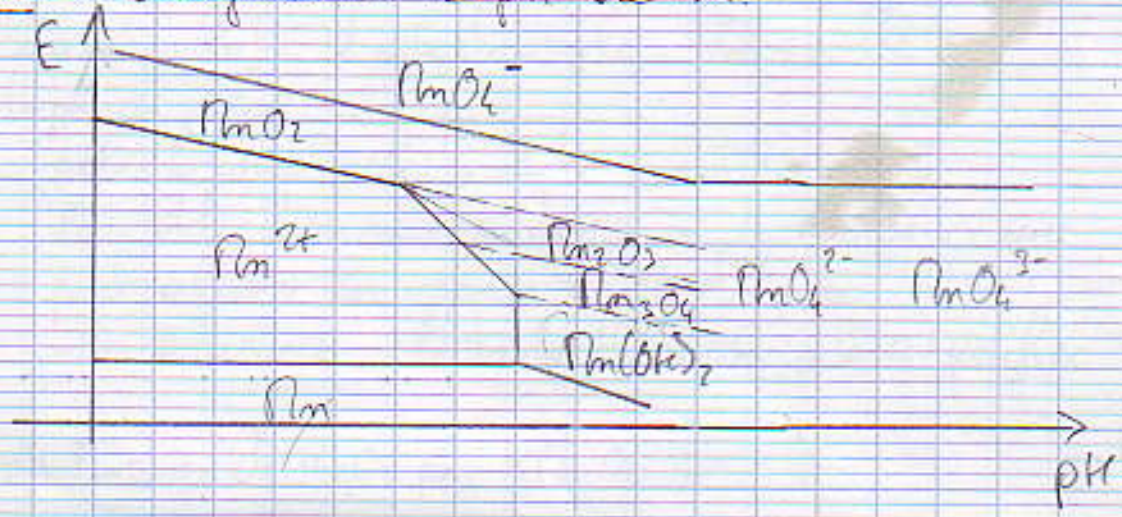 E
MnO₄⁻
MnO₂
Mn²⁺
Mn₂O₃
Mn₃O₄
MnO₄²⁻
MnO₄³⁻
Mn(OH)₂
Mn
pH